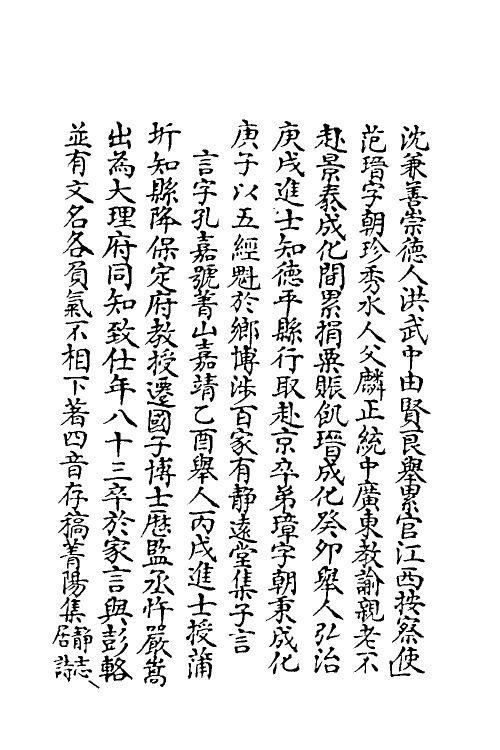 沈兼善崇德人洪武中由賢良舉累官江西按察使
范瑨字朝珍秀水人父麟正統中廣東教諭親老不
赴景泰成化間累捐粟賑飢瑨成化癸卯舉人弘治
庚戌進士知德平縣行取赴京卒弟璋字朝秉成化
庚子以五經魁於鄉博涉百家有静遠堂集子言
言字孔嘉號菁山嘉靖乙酉舉人丙戌進士授蒲
圻知縣降保定府教授遷國子博士歷監丞忤嚴嵩
出為大理府同知致仕年八十三卒於家言與彭輅
並有文名各負氣不相下著四音存稿菁陽集静志居詩